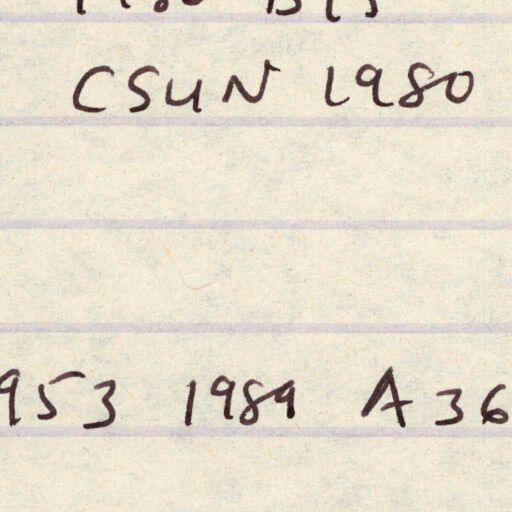 CSUN 1980
953 1989 A36